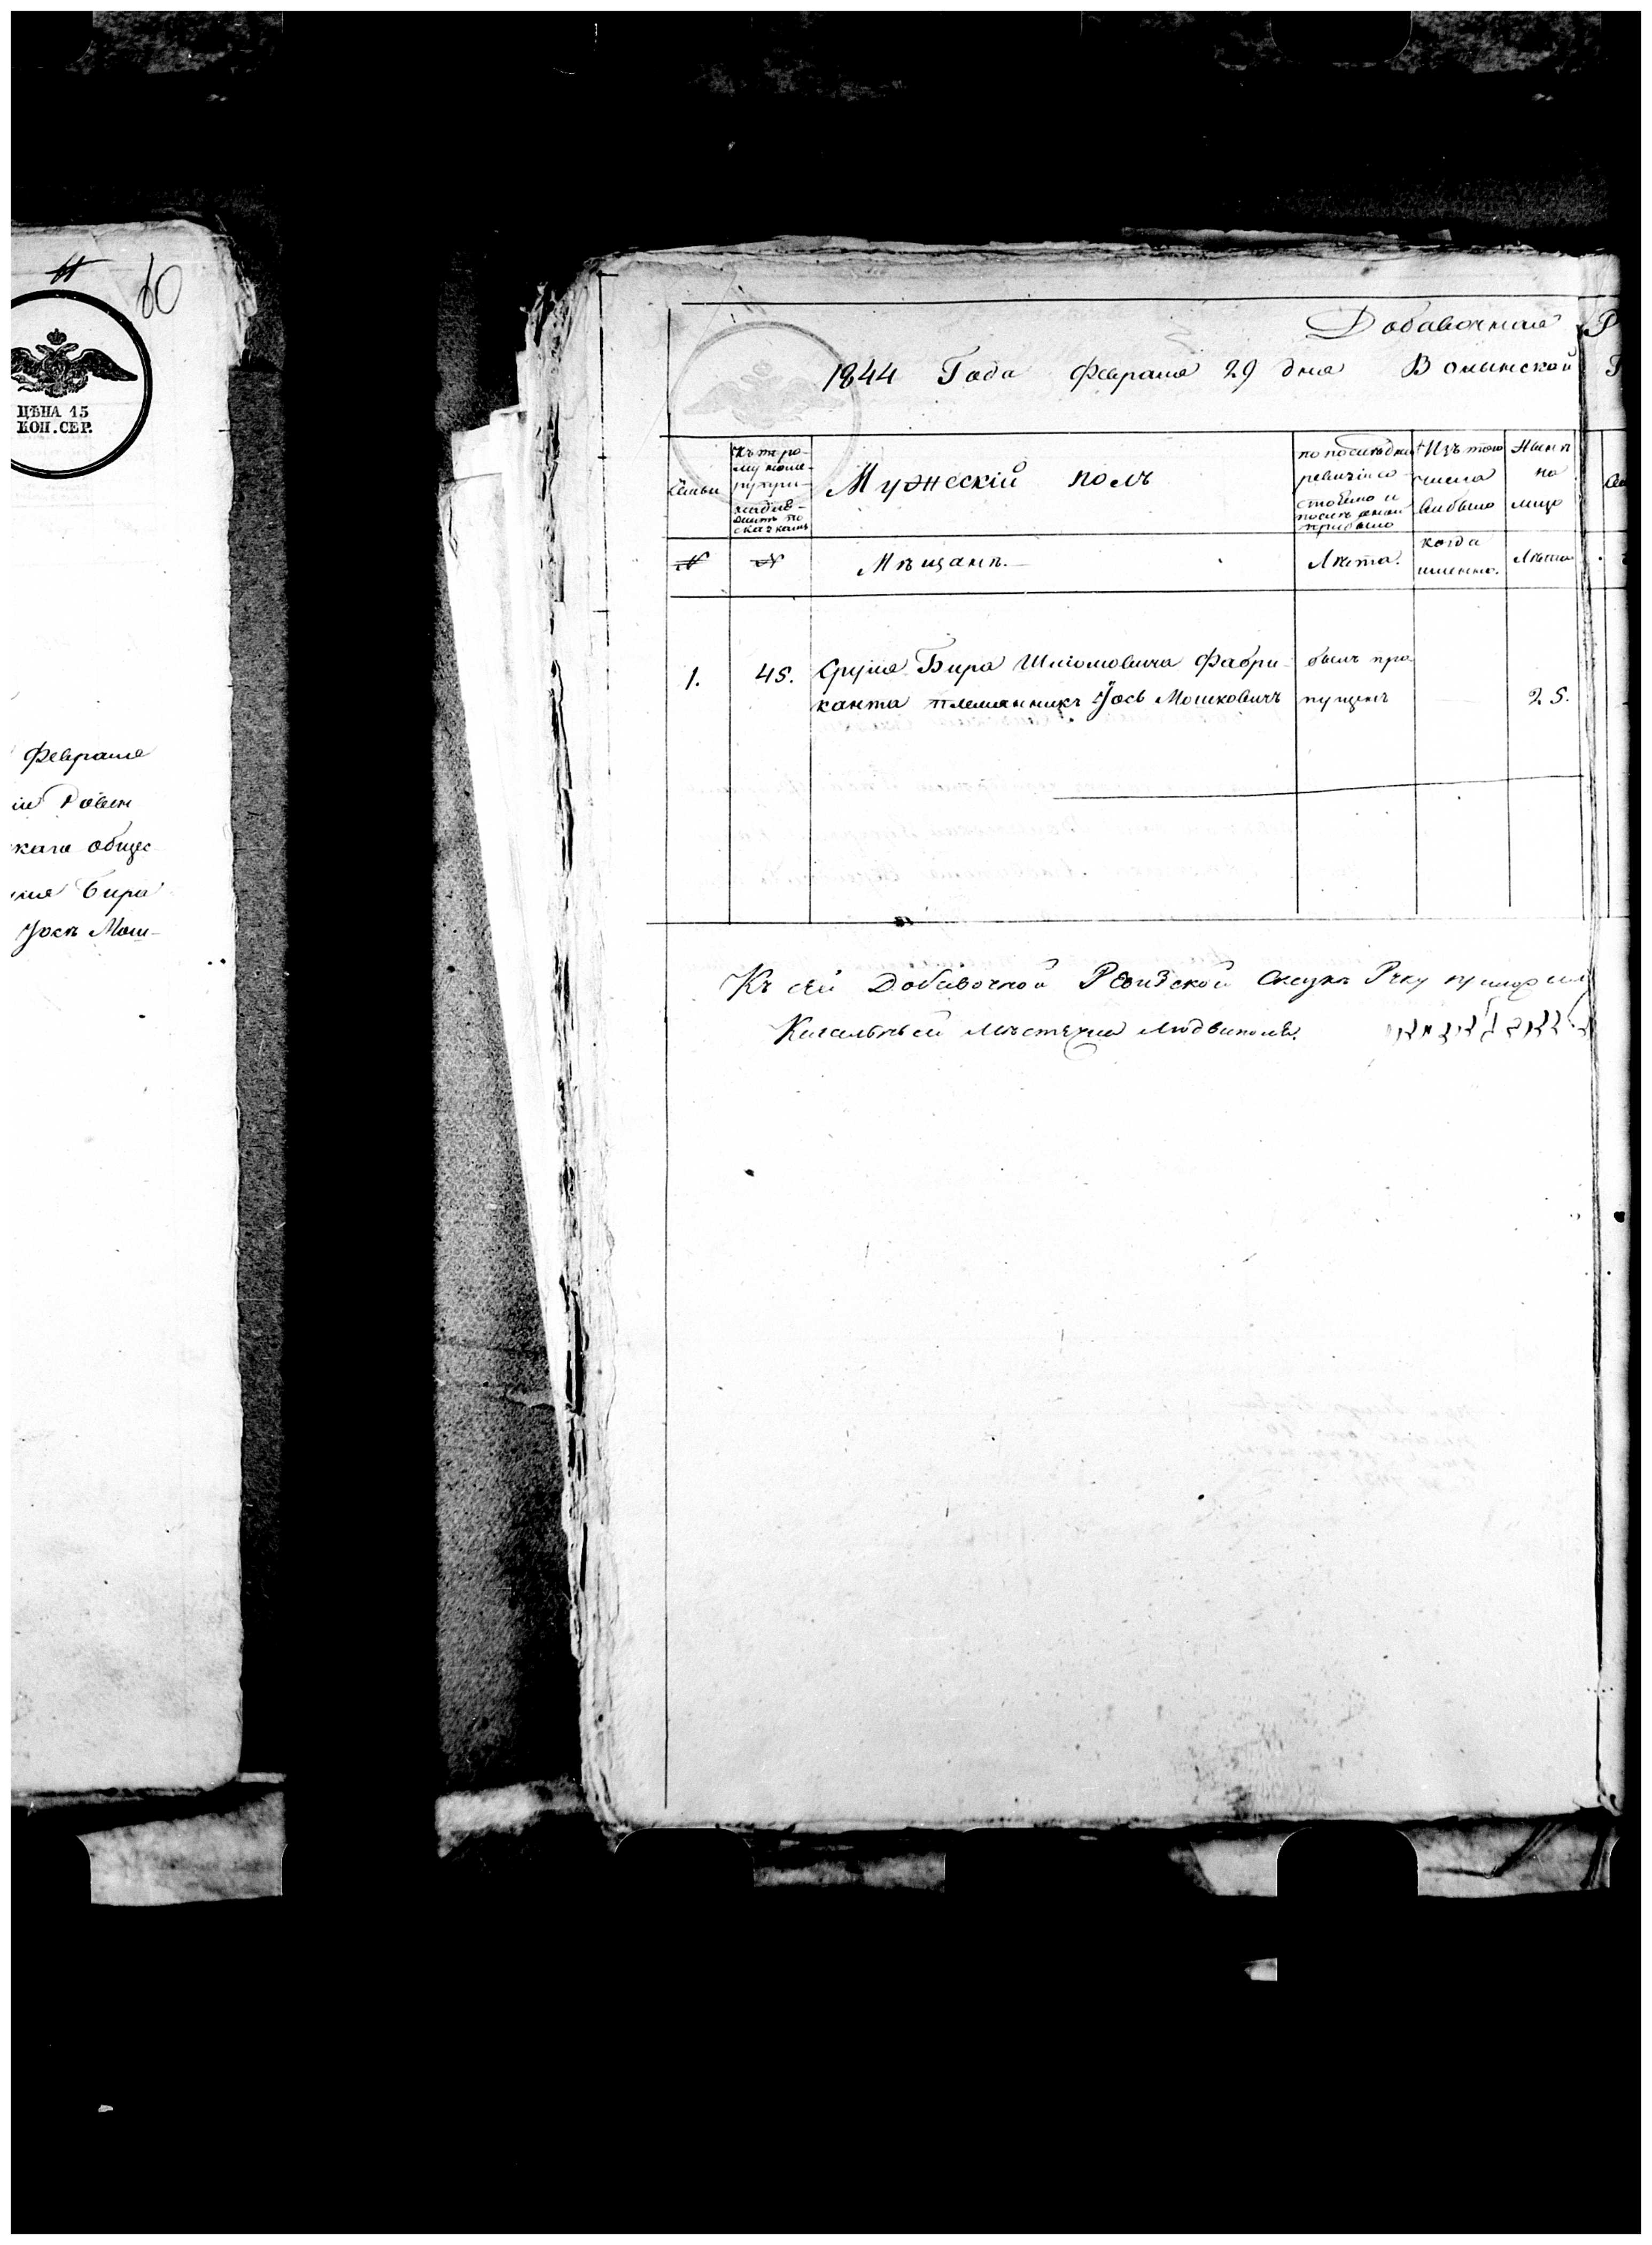 60
ЦѢНА 15
КОП. СЕР.
Февраля
Ровен
скаго общес
Бира
Јось Мош-
Добавочная Р
1844 Года Февраля 29 дня Волынской Г
Мужескій полъ
по последней
ревизіи со
стояло и
после оной
прибыло
Изъ того
числа
выбыло
Нынѣ
на
лицо
семьи
№ № Мѣщанѣ. Лѣта. когда
именно. Лѣта
1. 45. Сруля Бира Шліомовича Фабри-
канта племянникъ Јось Мошковичъ
былъ про
пущенъ
25.
Къ сей Добавочной Ревизской Сказкѣ Руку приложил
Кагальный мѣстечка Людвиполя.